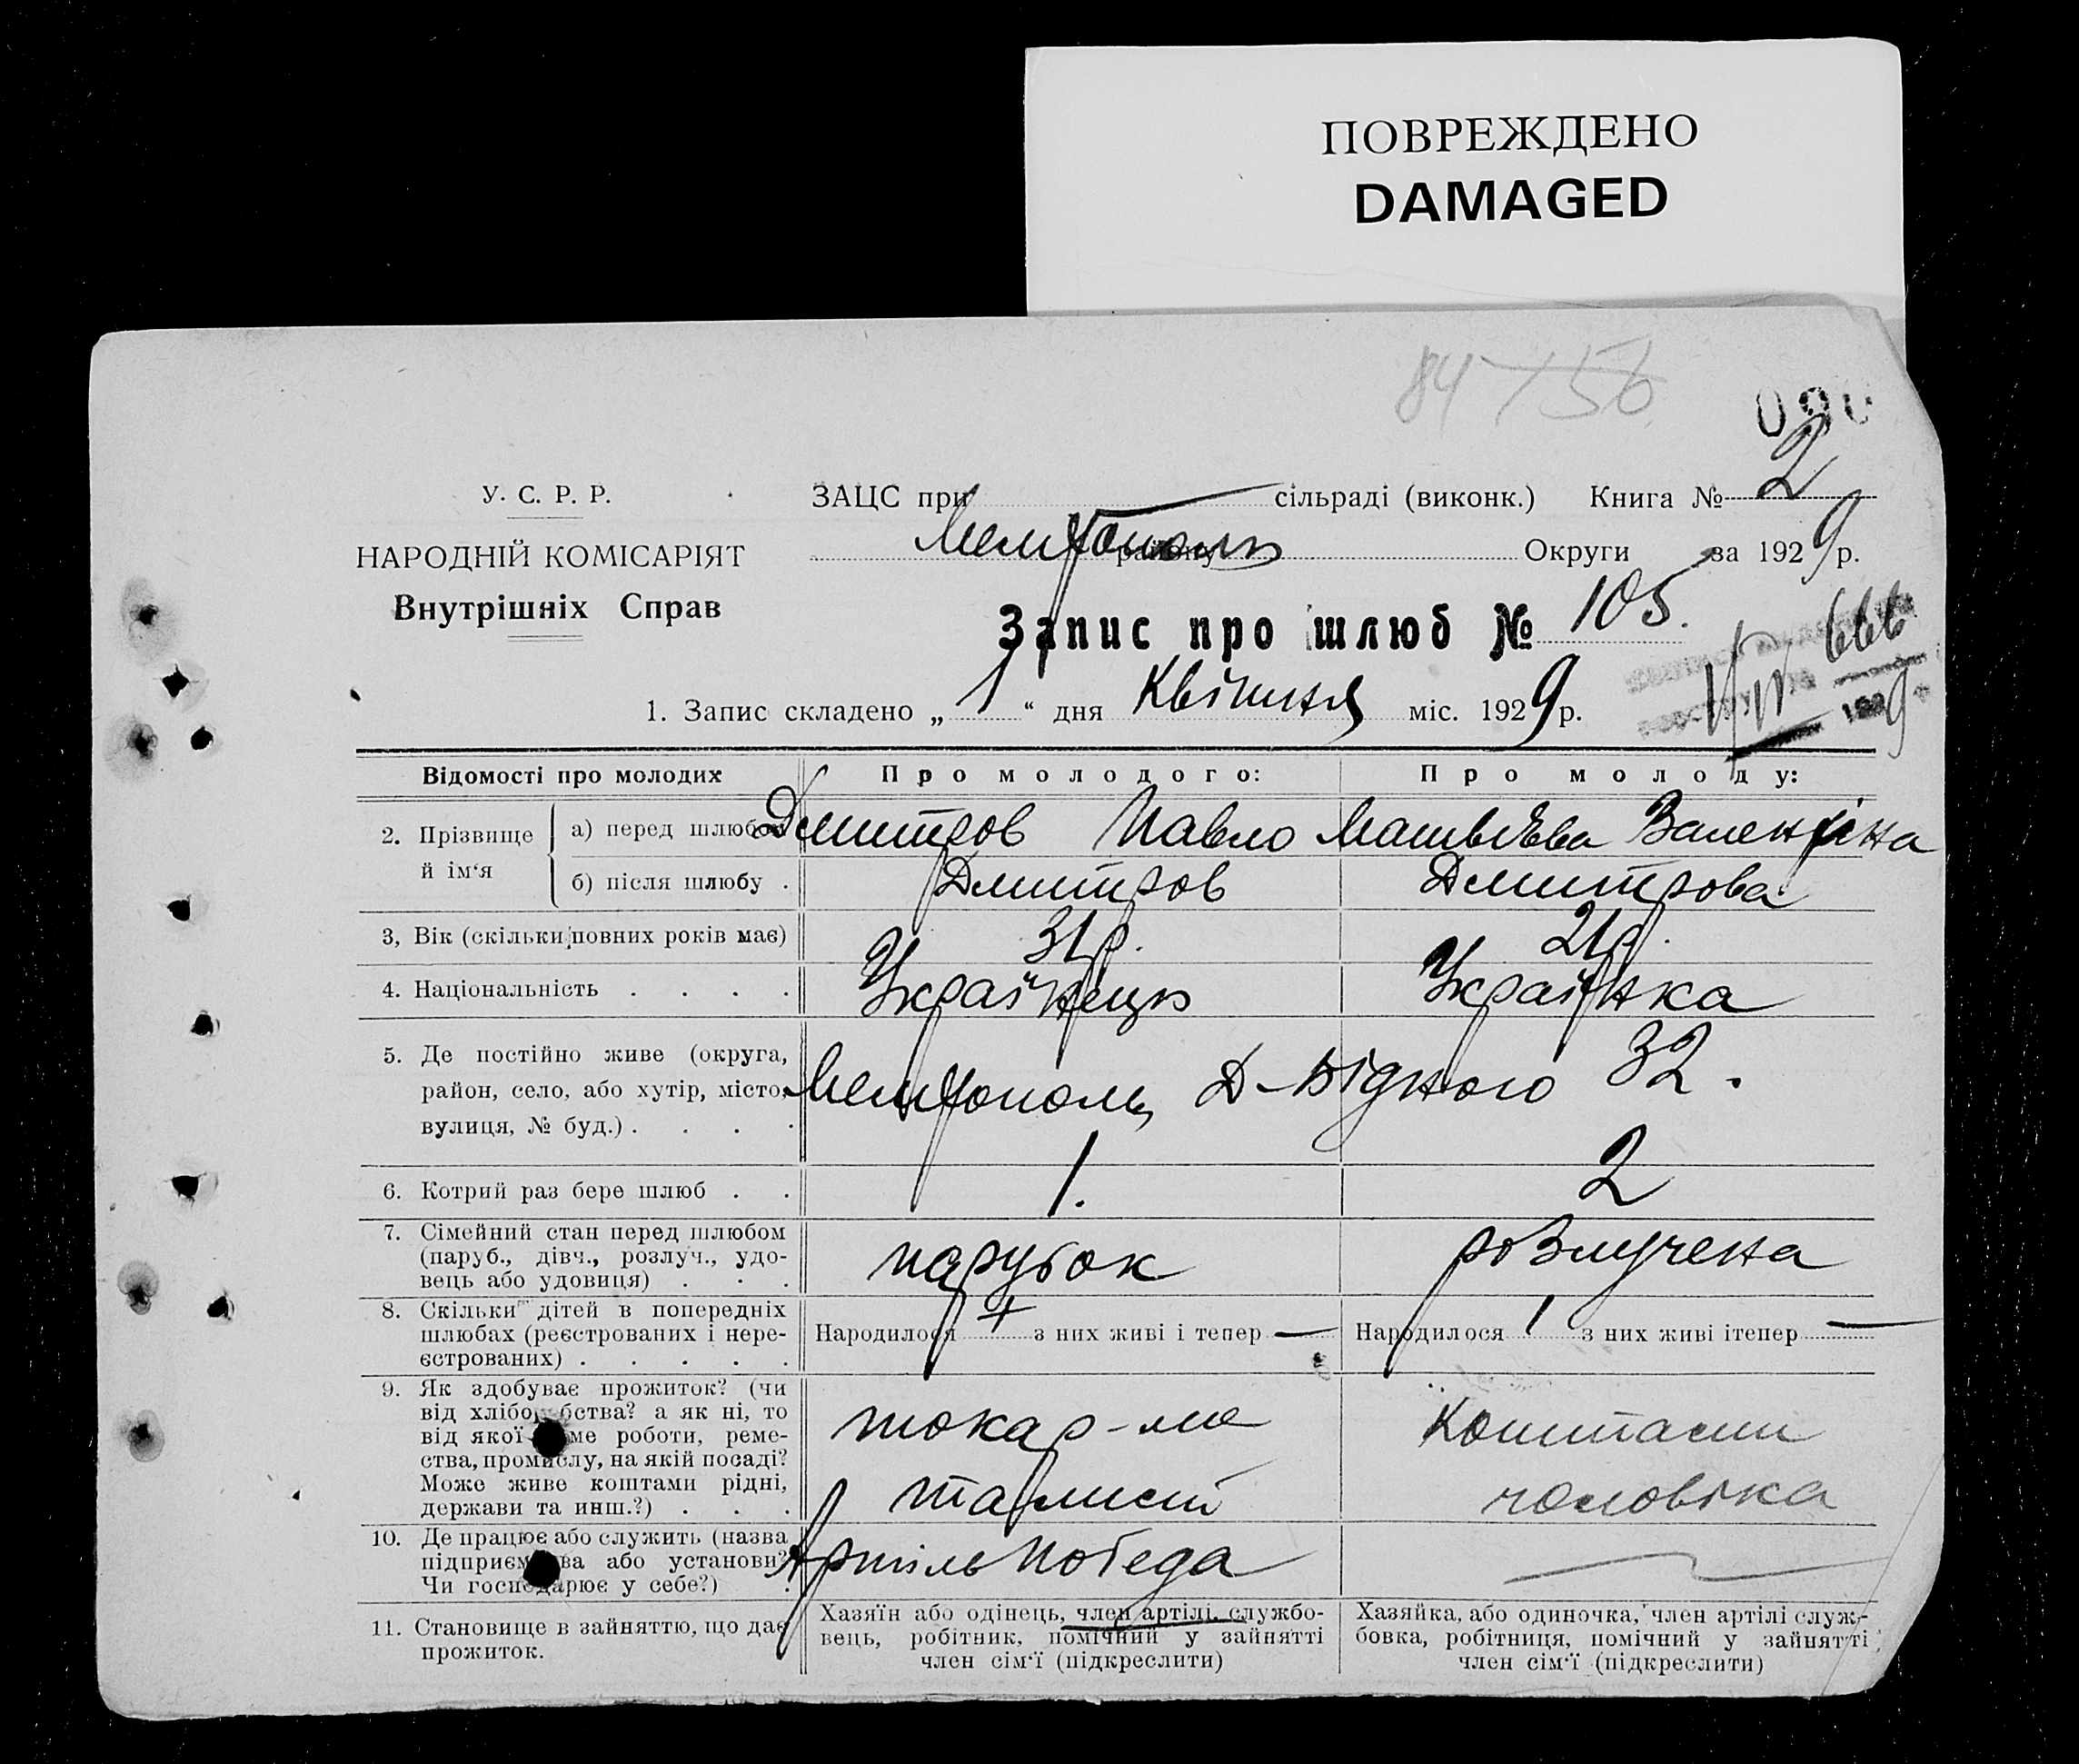 ПОВРЕЖДЕНО
DAMAGED
84 / 56
090
У. С. Р. Р.
НАРОДНІЙ КОМІСАРІЯТ
Внутрішніх Справ
ЗАЦС при сільраді (виконк.) Книга № 2
Мелітополь району Округи за 1929 р.
Запис про шлюб № 105.
666
1. Запис складено „1“ дня Квітня міс. 1929 р.
Відомості про молодих Про молодого: Про молоду:
2. Прізвище й ім'я
а) перед шлюбом Дмитров Павло Матвѣева Валентіна
б) після шлюбу . Дмитров Дмитрова
3, Вік (скільки повних років має) 31 р. 21 р.
4. Національність . . . . Українець Українка
5. Де постійно живе (округа,
район, село, або хутір, місто,
вулиця, № буд.) . . . .
Мелітополь Д-Бідного 32.
6. Котрий раз бере шлюб . . 1. 2
7. Сімейний стан перед шлюбом
(паруб., дівч., розлуч., удо-
вець або удовиця) . . .
парубок розлучена
8. Скільки дітей в попередніх
шлюбах (реєстрованих і нере-
єстрованих) . . . . .
Народилося + з них живі і тепер — Народилося 1 з них живі ітепер —
9. Як здобуває прожиток? (чи
від хлібо бства? а як ні, то
від якої ме роботи, реме-
ства, промислу, на якій посаді?
Може живе коштами рідні,
держави та инш.?) . . .
токар-ме
талист
Коштами
чоловіка
10. Де працює або служить (назва
підприєм ва або установи?
Чи господарює у себе?) .
Артіль Победа —
11. Становище в зайняттю, що дає
прожиток.
Хазяїн або одінець, член артілі, службо-
вець, робітник, помічний у зайнятті
член сім'ї (підкреслити)
Хазяйка, або одиночка, член артілі служ-
бовка, робітниця, помічний у зайнятті
член сім'ї (підкреслити)